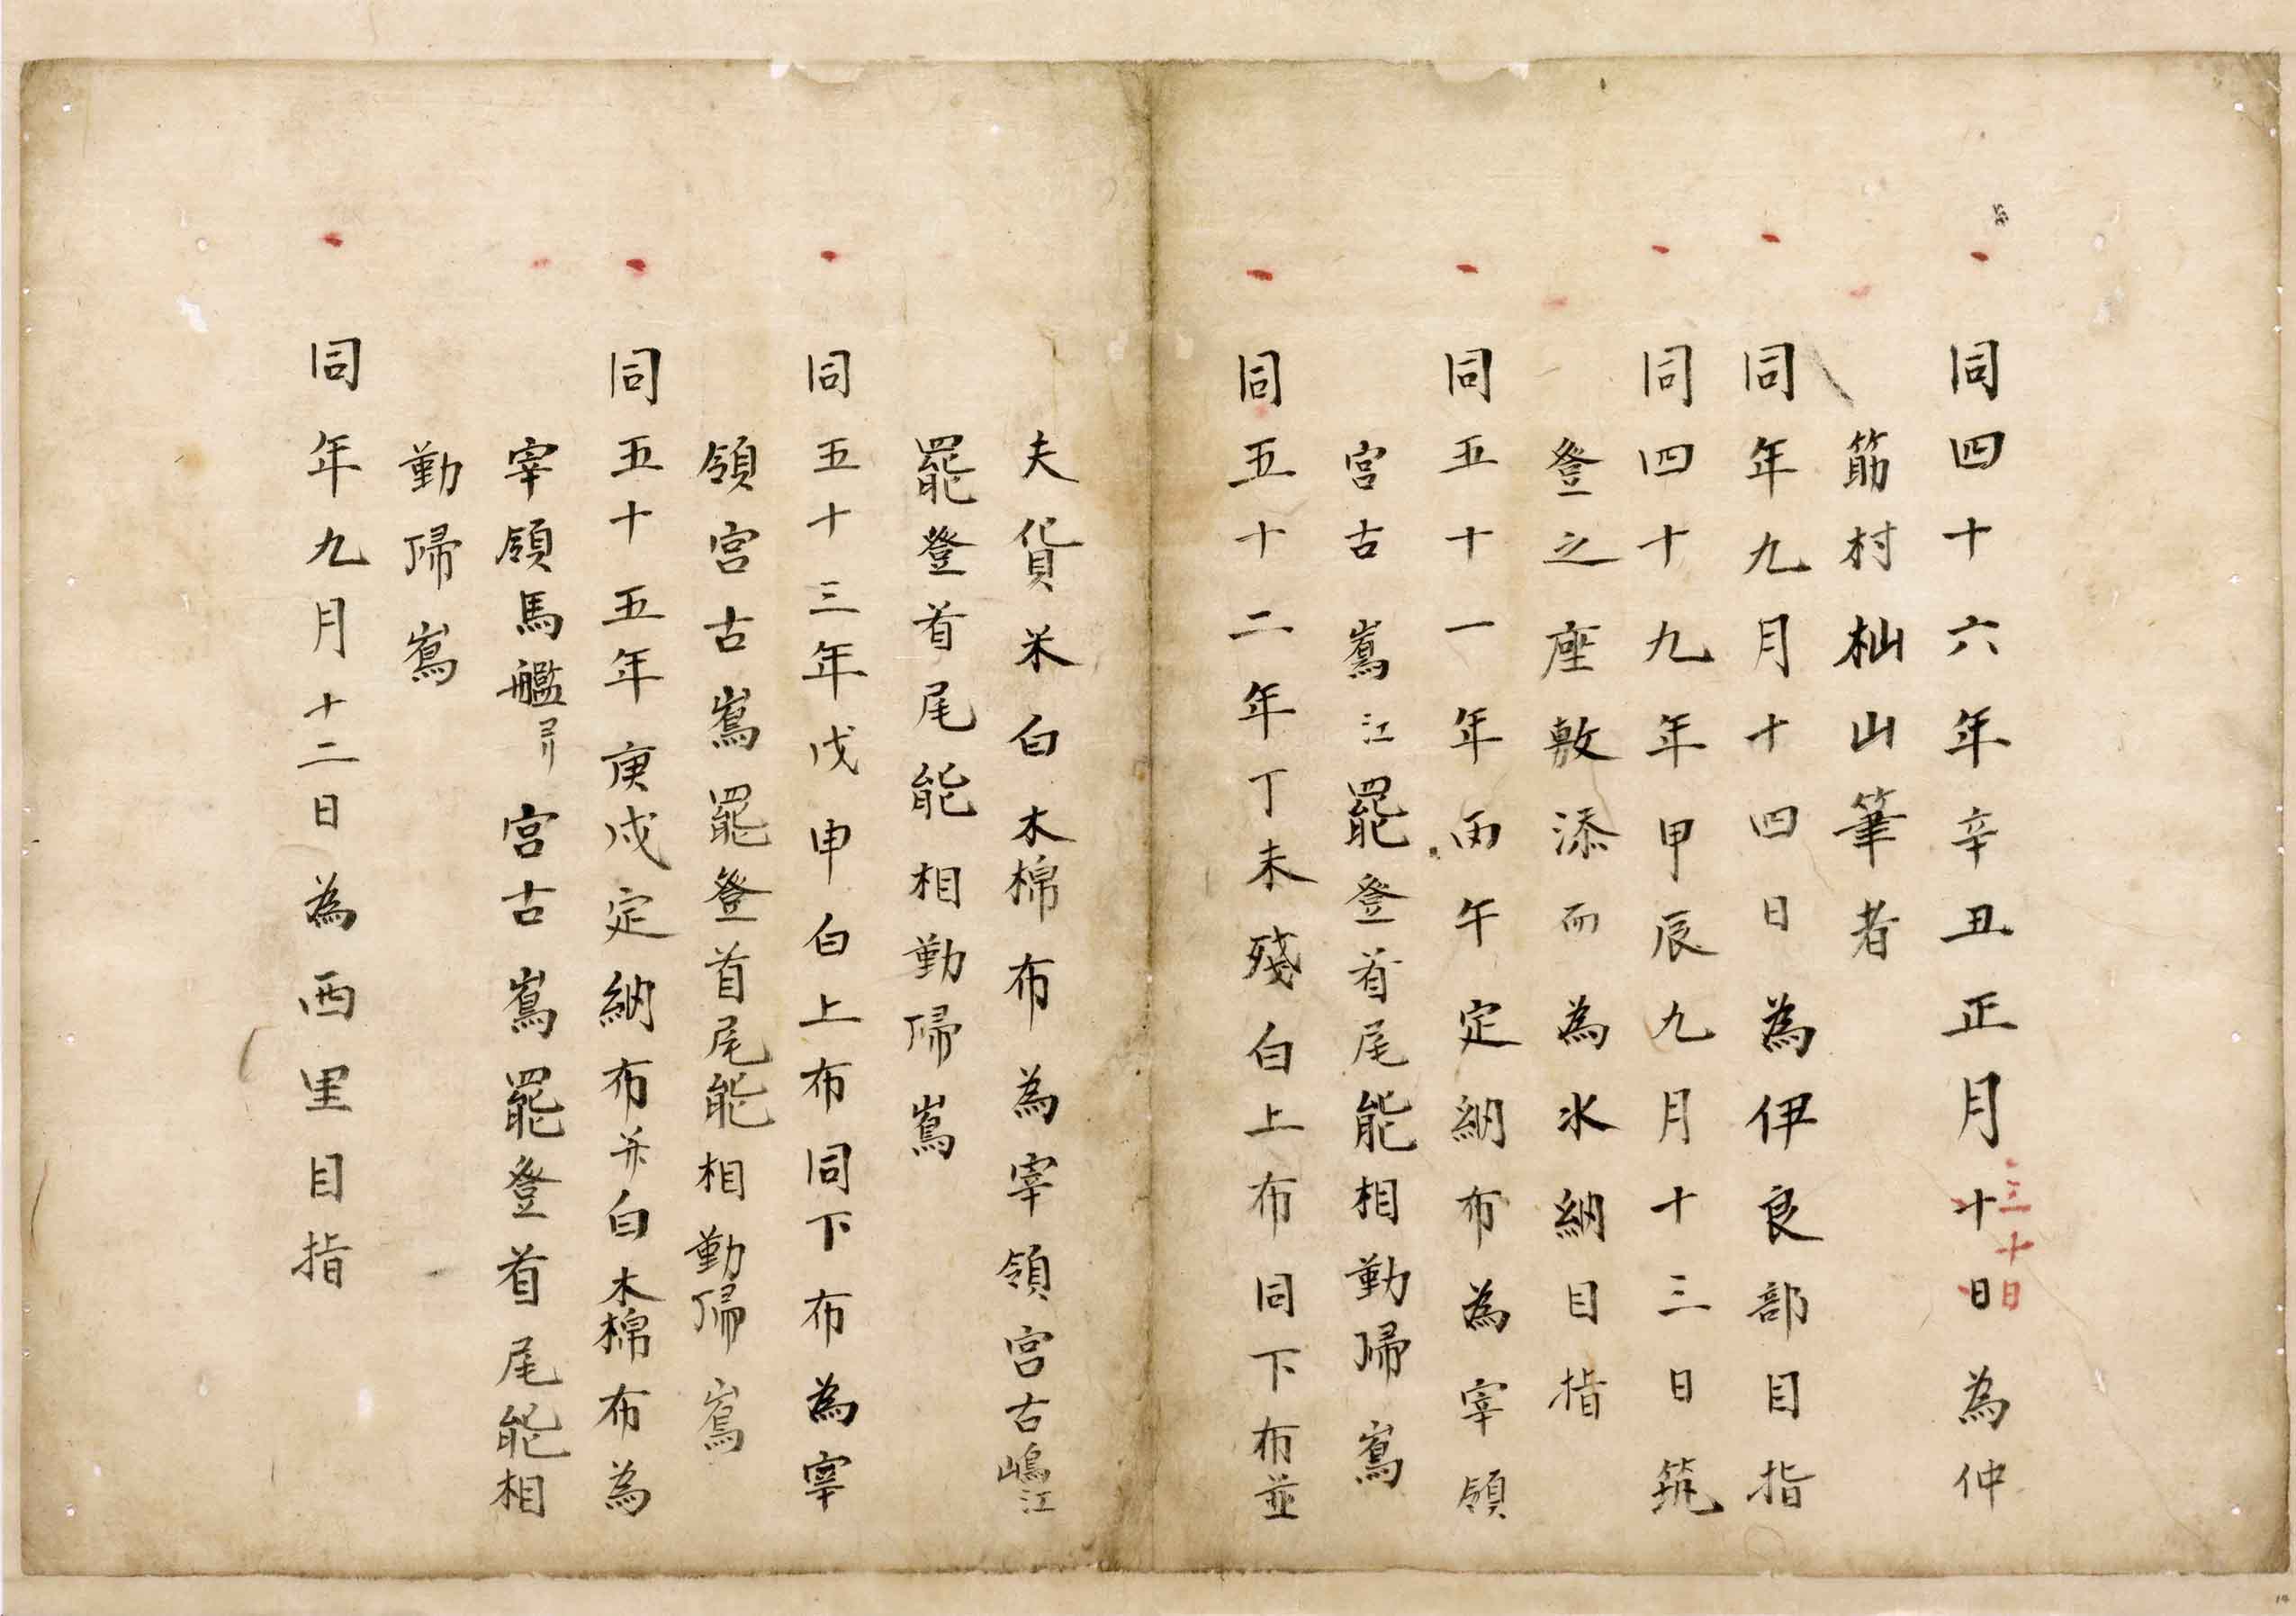 同四十六年辛丑正月十日為仲
三十日
筋村杣山筆者
同年九月十四日為伊良部目指
同四十九年甲辰九月十三日筑
登之座敷添而為水納目指
同五十一年丙午定納布為宰領
宮古嶌江罷登首尾能相勤帰嶌
同五十二年丁未殘白上布同下布並
夫賃米白木棉布為宰領宮古嶋江
罷登首尾能相勤帰嶌
同五十三年戊申白上布同下布為宰
領宮古嶌罷登首尾能相勤帰嶌
同五十五年庚戌定納布并白木棉布為
宰領馬艦宮古嶌罷登首尾能相
勤帰嶌
同年九月十二日為西里目指